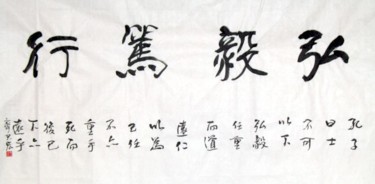 弘毅篤行
孔子
曰士
不可
以不
弘毅
任重
而道
遠仁
以為
己任
不亦
重乎
死而
後已
不亦
遠乎